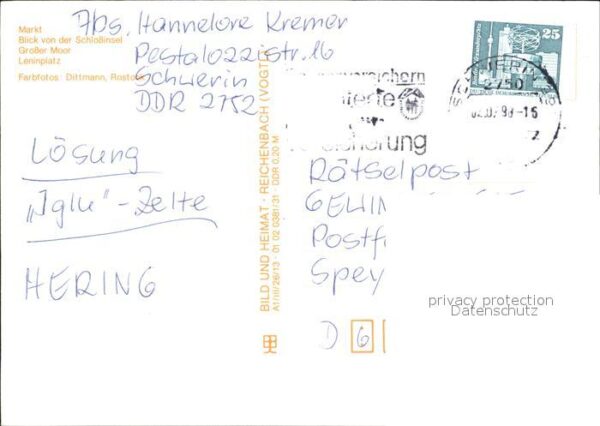 Markt
Blick von der Schloßinsel
Großer Moor
Leninplatz
Farbfotos: Dittmann, Rostock
Abs. Hannelore Kremer
Pestalozzistr. 16
Schwerin
DDR 2752
Lösung
"Iglu"-Zelte
HERING
BILD UND HEIMAT · REICHENBACH (VOGTL
A1/III/26/13 · 01 02 0381/31 · DDR 0,20 M
25
2750
-15
sichern
Rätselpost
GEWIN
Postf
Spey
D 6
privacy protection
Datenschutz